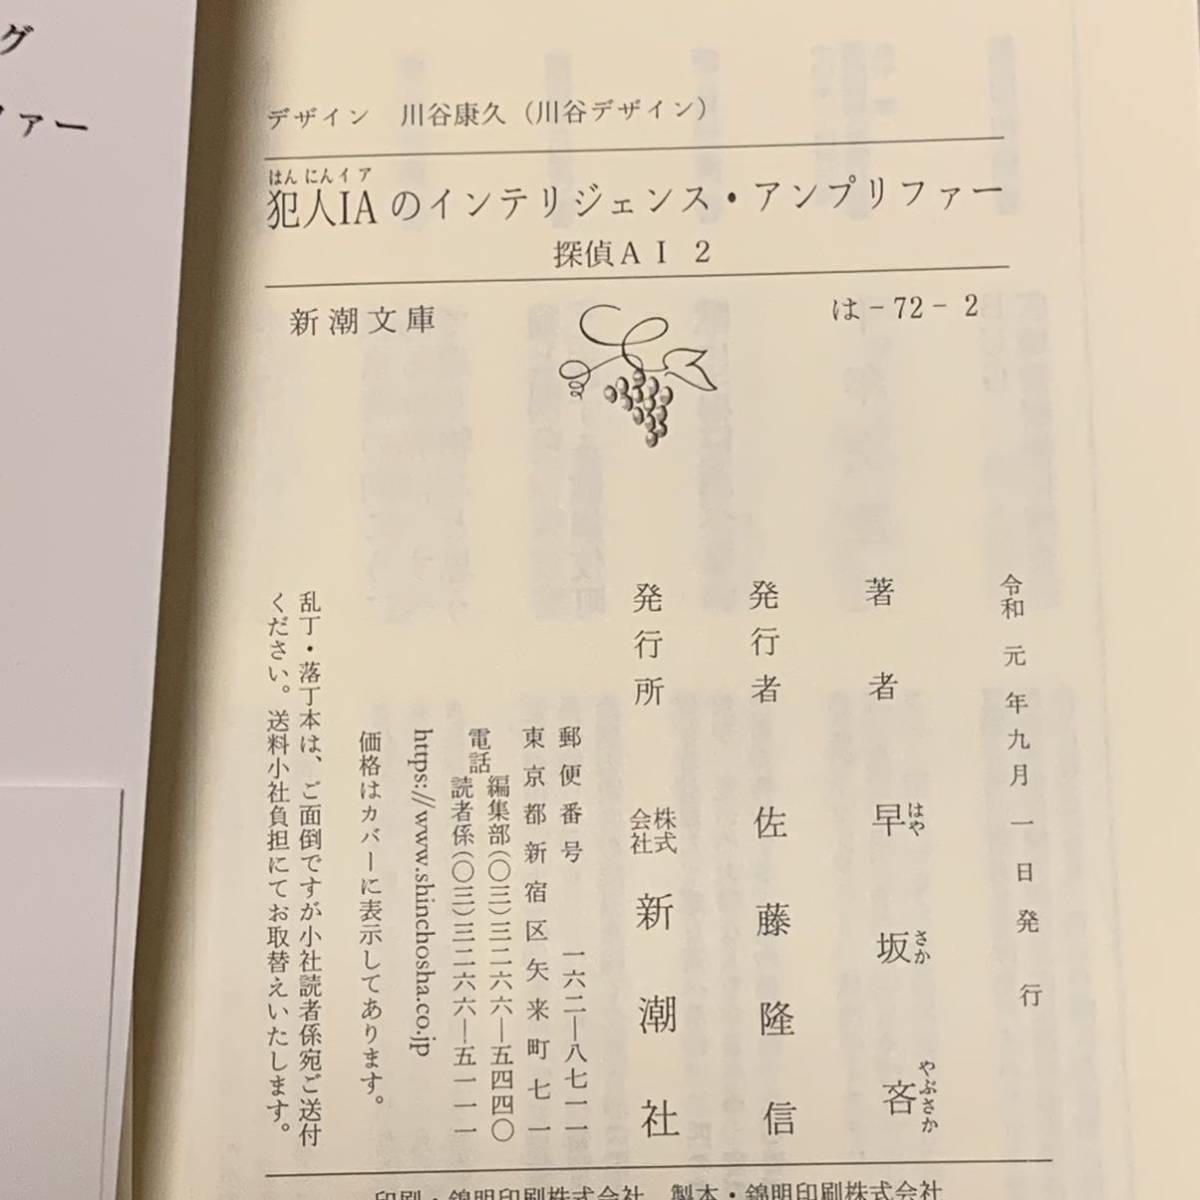 グ
ファー
デザイン　川谷康久（川谷デザイン）
はんにんイア
犯人IAのインテリジェンス・アンプリファー
探偵AI 2
新潮文庫
は-72-2
令和元年九月一日発行
著者　早坂吝
はやさかやぶさか
発行者　佐藤隆信
発行所　株式会社　新潮社
郵便番号　一六二―八七一一
東京都新宿区矢来町七一
電話
編集部(〇三)三二六六―五四四〇
読者係(〇三)三二六六―五一一一
https://www.shinchosha.co.jp
価格はカバーに表示してあります。
乱丁・落丁本は、ご面倒ですが小社読者係宛ご送付
ください。送料小社負担にてお取替えいたします。
印刷・錦明印刷株式会社　製本・錦明印刷株式会社